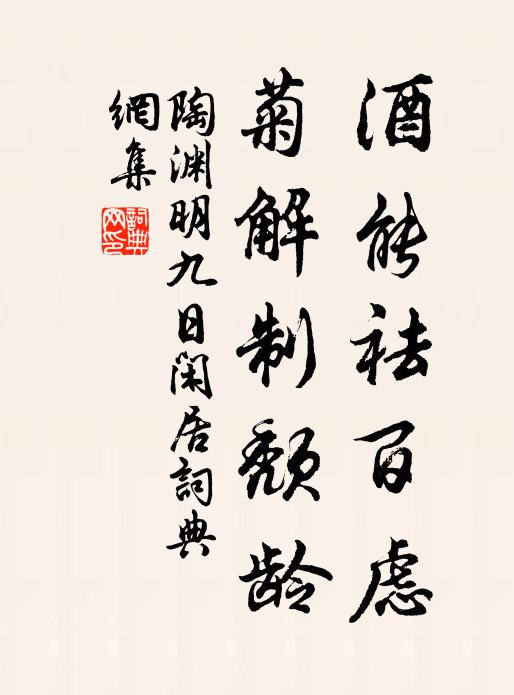 酒能祛百慮
菊解制頹龄
陶渊明九日閑居詞典
網集
詞典
网印